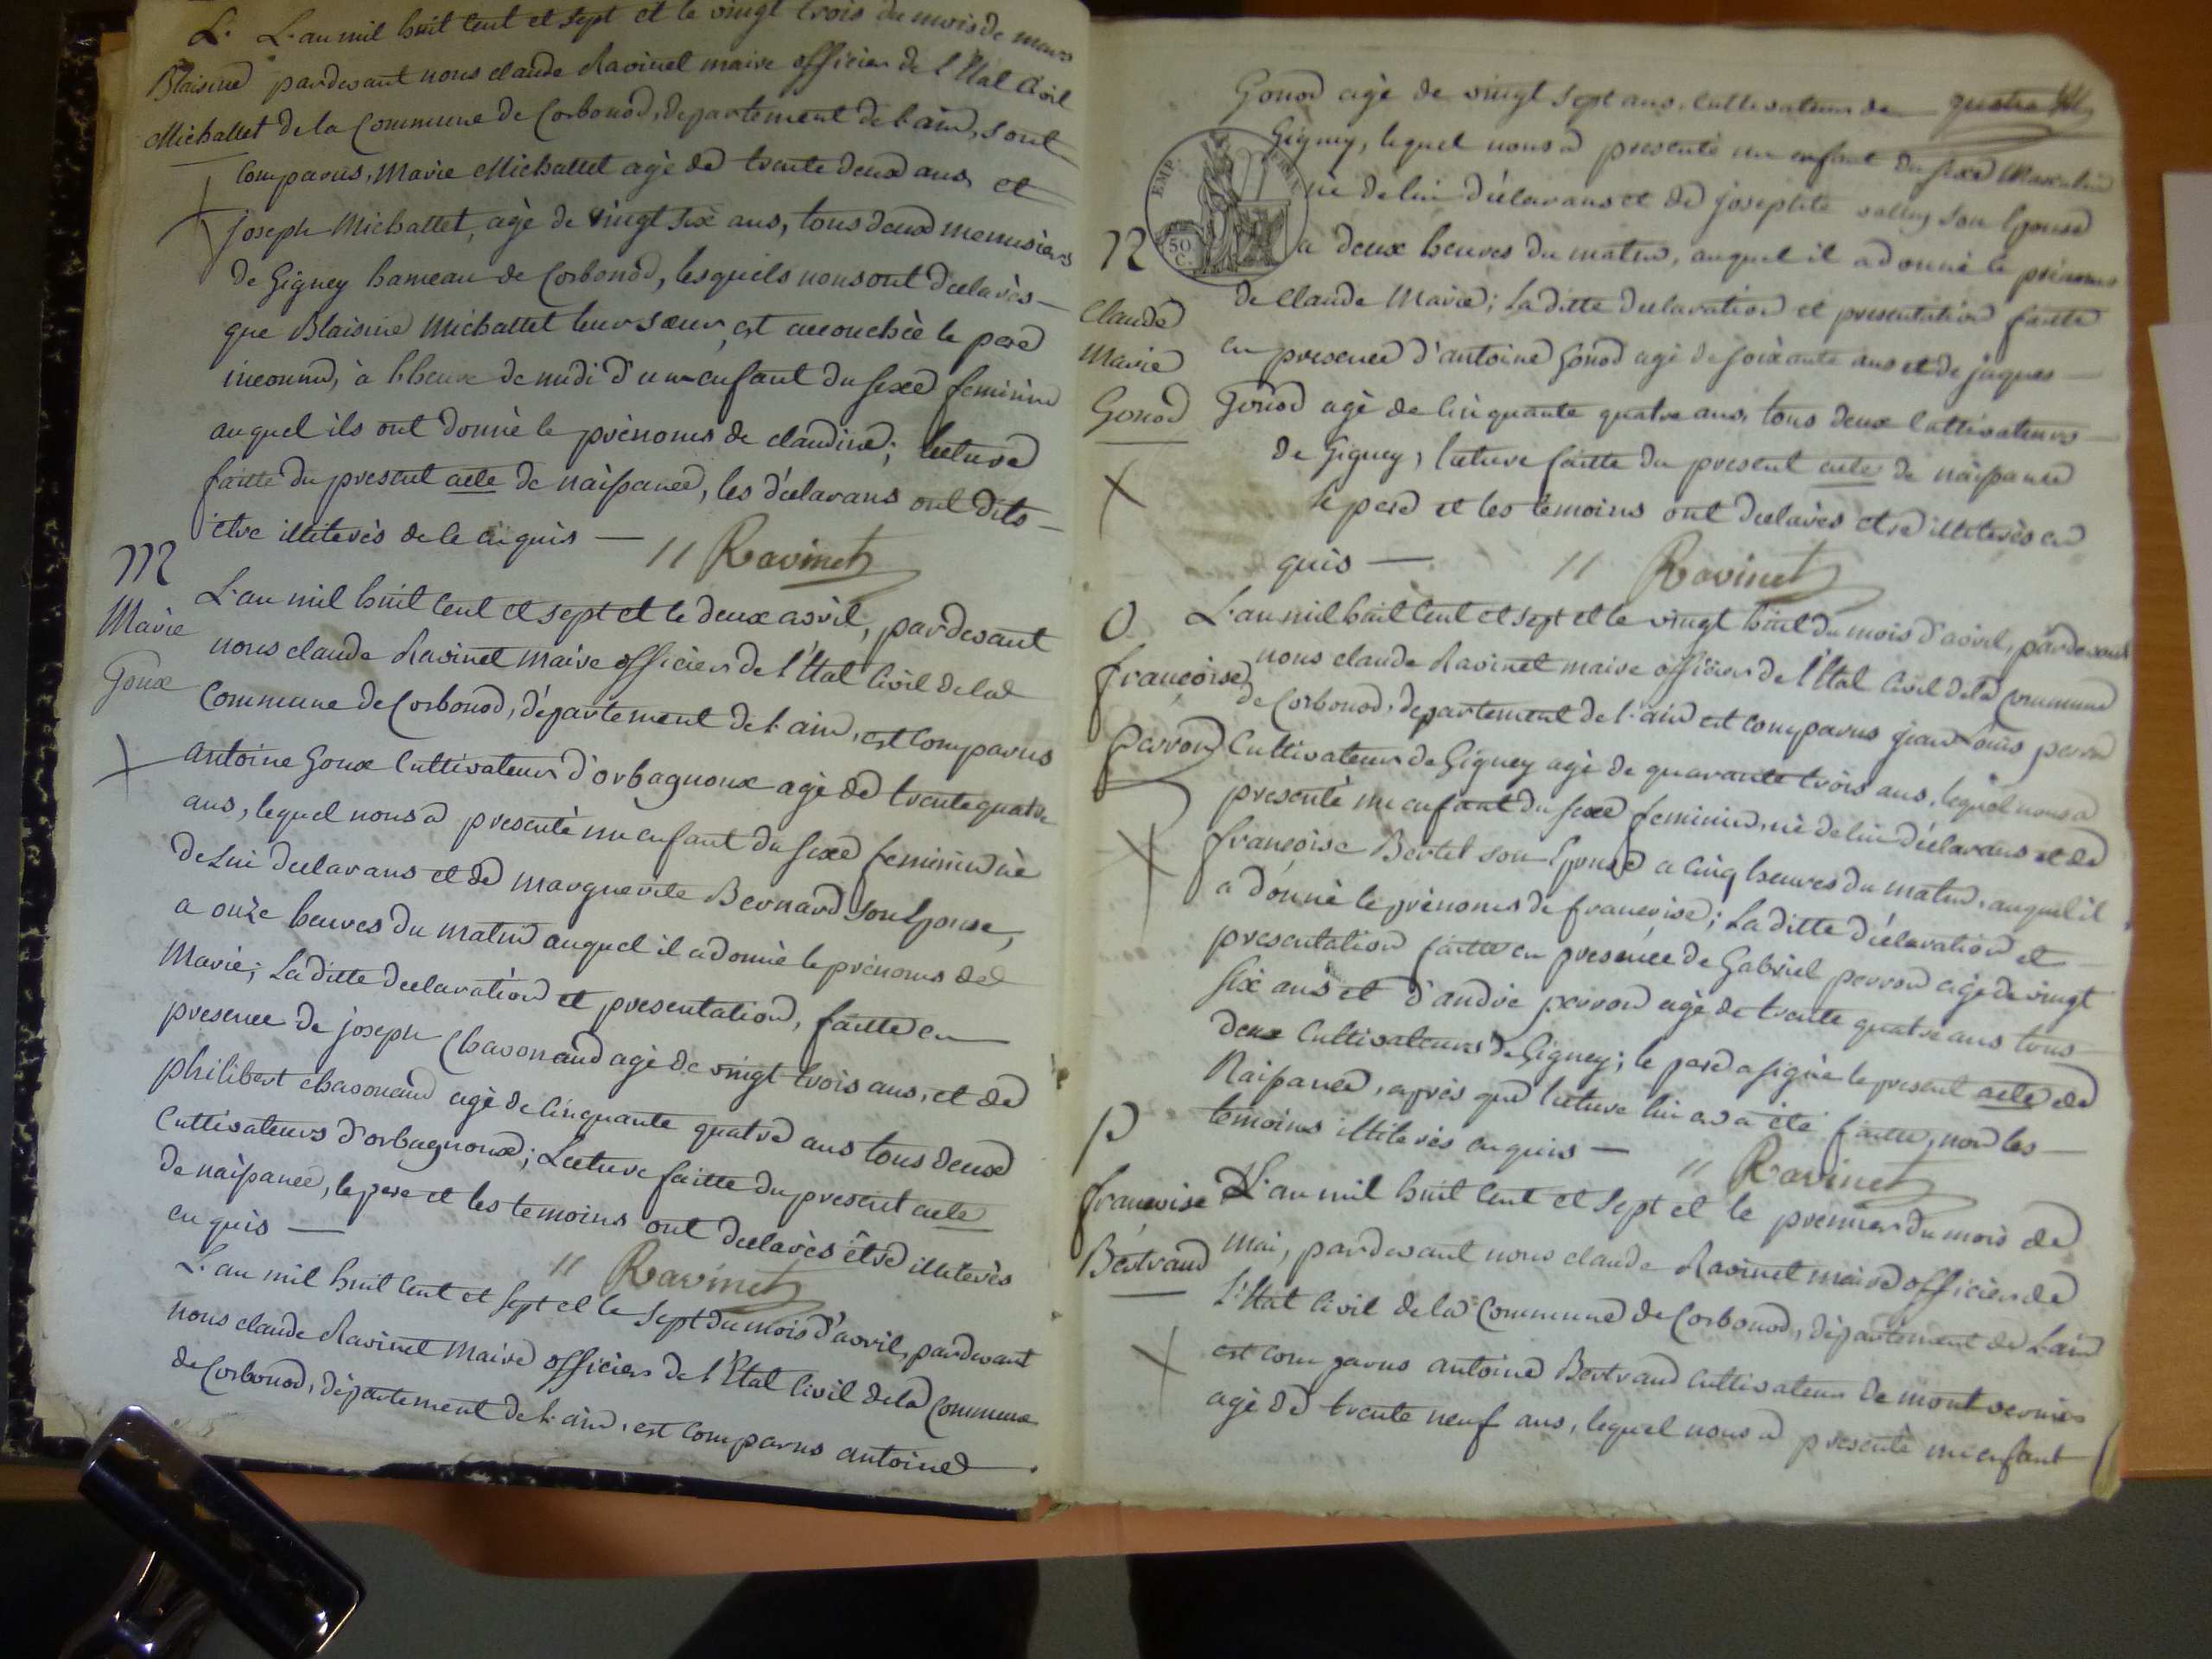 L. L'an mil huit cent et sept et le vingt trois du mois de mars
Blaisine pardevant nous claude Ravinet maire officier de l'Etat Civil
Michallet de la Commune de Corbonod, departement de l'ain, sont
Comparus, Marie Michallet agé de trente deux ans et
joseph Michallet, agé de vingt six ans, tous deux menusiers
de Gigney hameau de Corbonod, lesquels nous ont déclarés
que Blaisine Michallet leur sœur, est accouchée le pere
inconnu, à l'heure de midi d'un enfant du sexe feminin
auquel ils ont donné le prénoms de claudine; lecture
faitte du present acte de naissance, les déclarans ont dits
être illiterés de ce enquis — // Ravinet
M
Marie
Goux
L'an mil huit cent et sept et le deux avril, pardevant
nous claude Ravinet maire officier de l'Etat Civil de la
Commune de Corbonod, département de l'ain, est comparus
antoine Goux Cultivateur d'orbagnoux agé de trente quatre
ans, lequel nous a presenté un enfant du sexe feminin né
de lui declarans et de marguerite Bernard son Epouse,
a onze heures du matin auquel il a donné le prénoms de
Marie; La ditte declaration et presentation, faitte en
presence de joseph Chavonand agé de vingt trois ans, et de
philibert chavonand agé de Cinquante quatre ans tous deux
Cultivateurs d'orbagnoux; Lecture faitte du present acte
de naissance, le pere et les temoins ont declarés être illiterés
enquis — // Ravinet
L'an mil huit cent et sept et le sept du mois d'avril, pardevant
nous claude Ravinet Maire officier de l'Etat Civil de la Commune
de Corbonod, département de l'ain, est comparus antoine
Gonod agé de vingt sept ans, Cultivateur de
Gigney, lequel nous a presenté un enfant du sexe Masculin
EMP.
50 C.
né de lui déclarans et de josephte son Epouse
N
a deux heures du matin, auquel il a donné le prénoms
Claude
Marie
Gonod
de Claude Marie; La ditte declaration et presentation faitte
en presence d'antoine Gonod agé de soixante ans et de jaques
Gonod agé de Cinquante quatre ans, tous deux Cultivateurs
de Gigney, lecture faitte du present acte de naissance
le pere et les temoins ont declarés etre illiterés en
quis — // Ravinet
O
françoise
perron
L'an mil huit cent et sept et le vingt huit du mois d'avril, pardevant
nous claude Ravinet maire officier de l'Etat Civil de la Commune
de Corbonod, departement de l'ain est comparus jean Louis perron
Cultivateur de Gigney agé de quarante trois ans, lequel nous a
presenté un enfant du sexe feminin, né de lui déclarans et de
françoise Bertet son Epouse a Cinq heures du matin, auquel il
a donné le prénoms de françoise; La ditte déclaration et
presentation faitte en presence de Gabriel perron agé de vingt
six ans et d'andré perron agé de trente quatre ans tous
deux Cultivateurs de Gigney; le pere a signé le present acte de
Naissance, après que lecture lui en a été faitte, non les
temoins illiterés enquis — // Ravinet
P
françoise
Bertrand
L'an mil huit cent et sept et le premier du mois de
Mai, pardevant nous claude Ravinet maire officier de
L'Etat Civil de la Commune de Corbonod, département de Lain
est comparus antoine Bertrand Cultivateur de mont vernier
agé de trente neuf ans, lequel nous a presenté un enfant